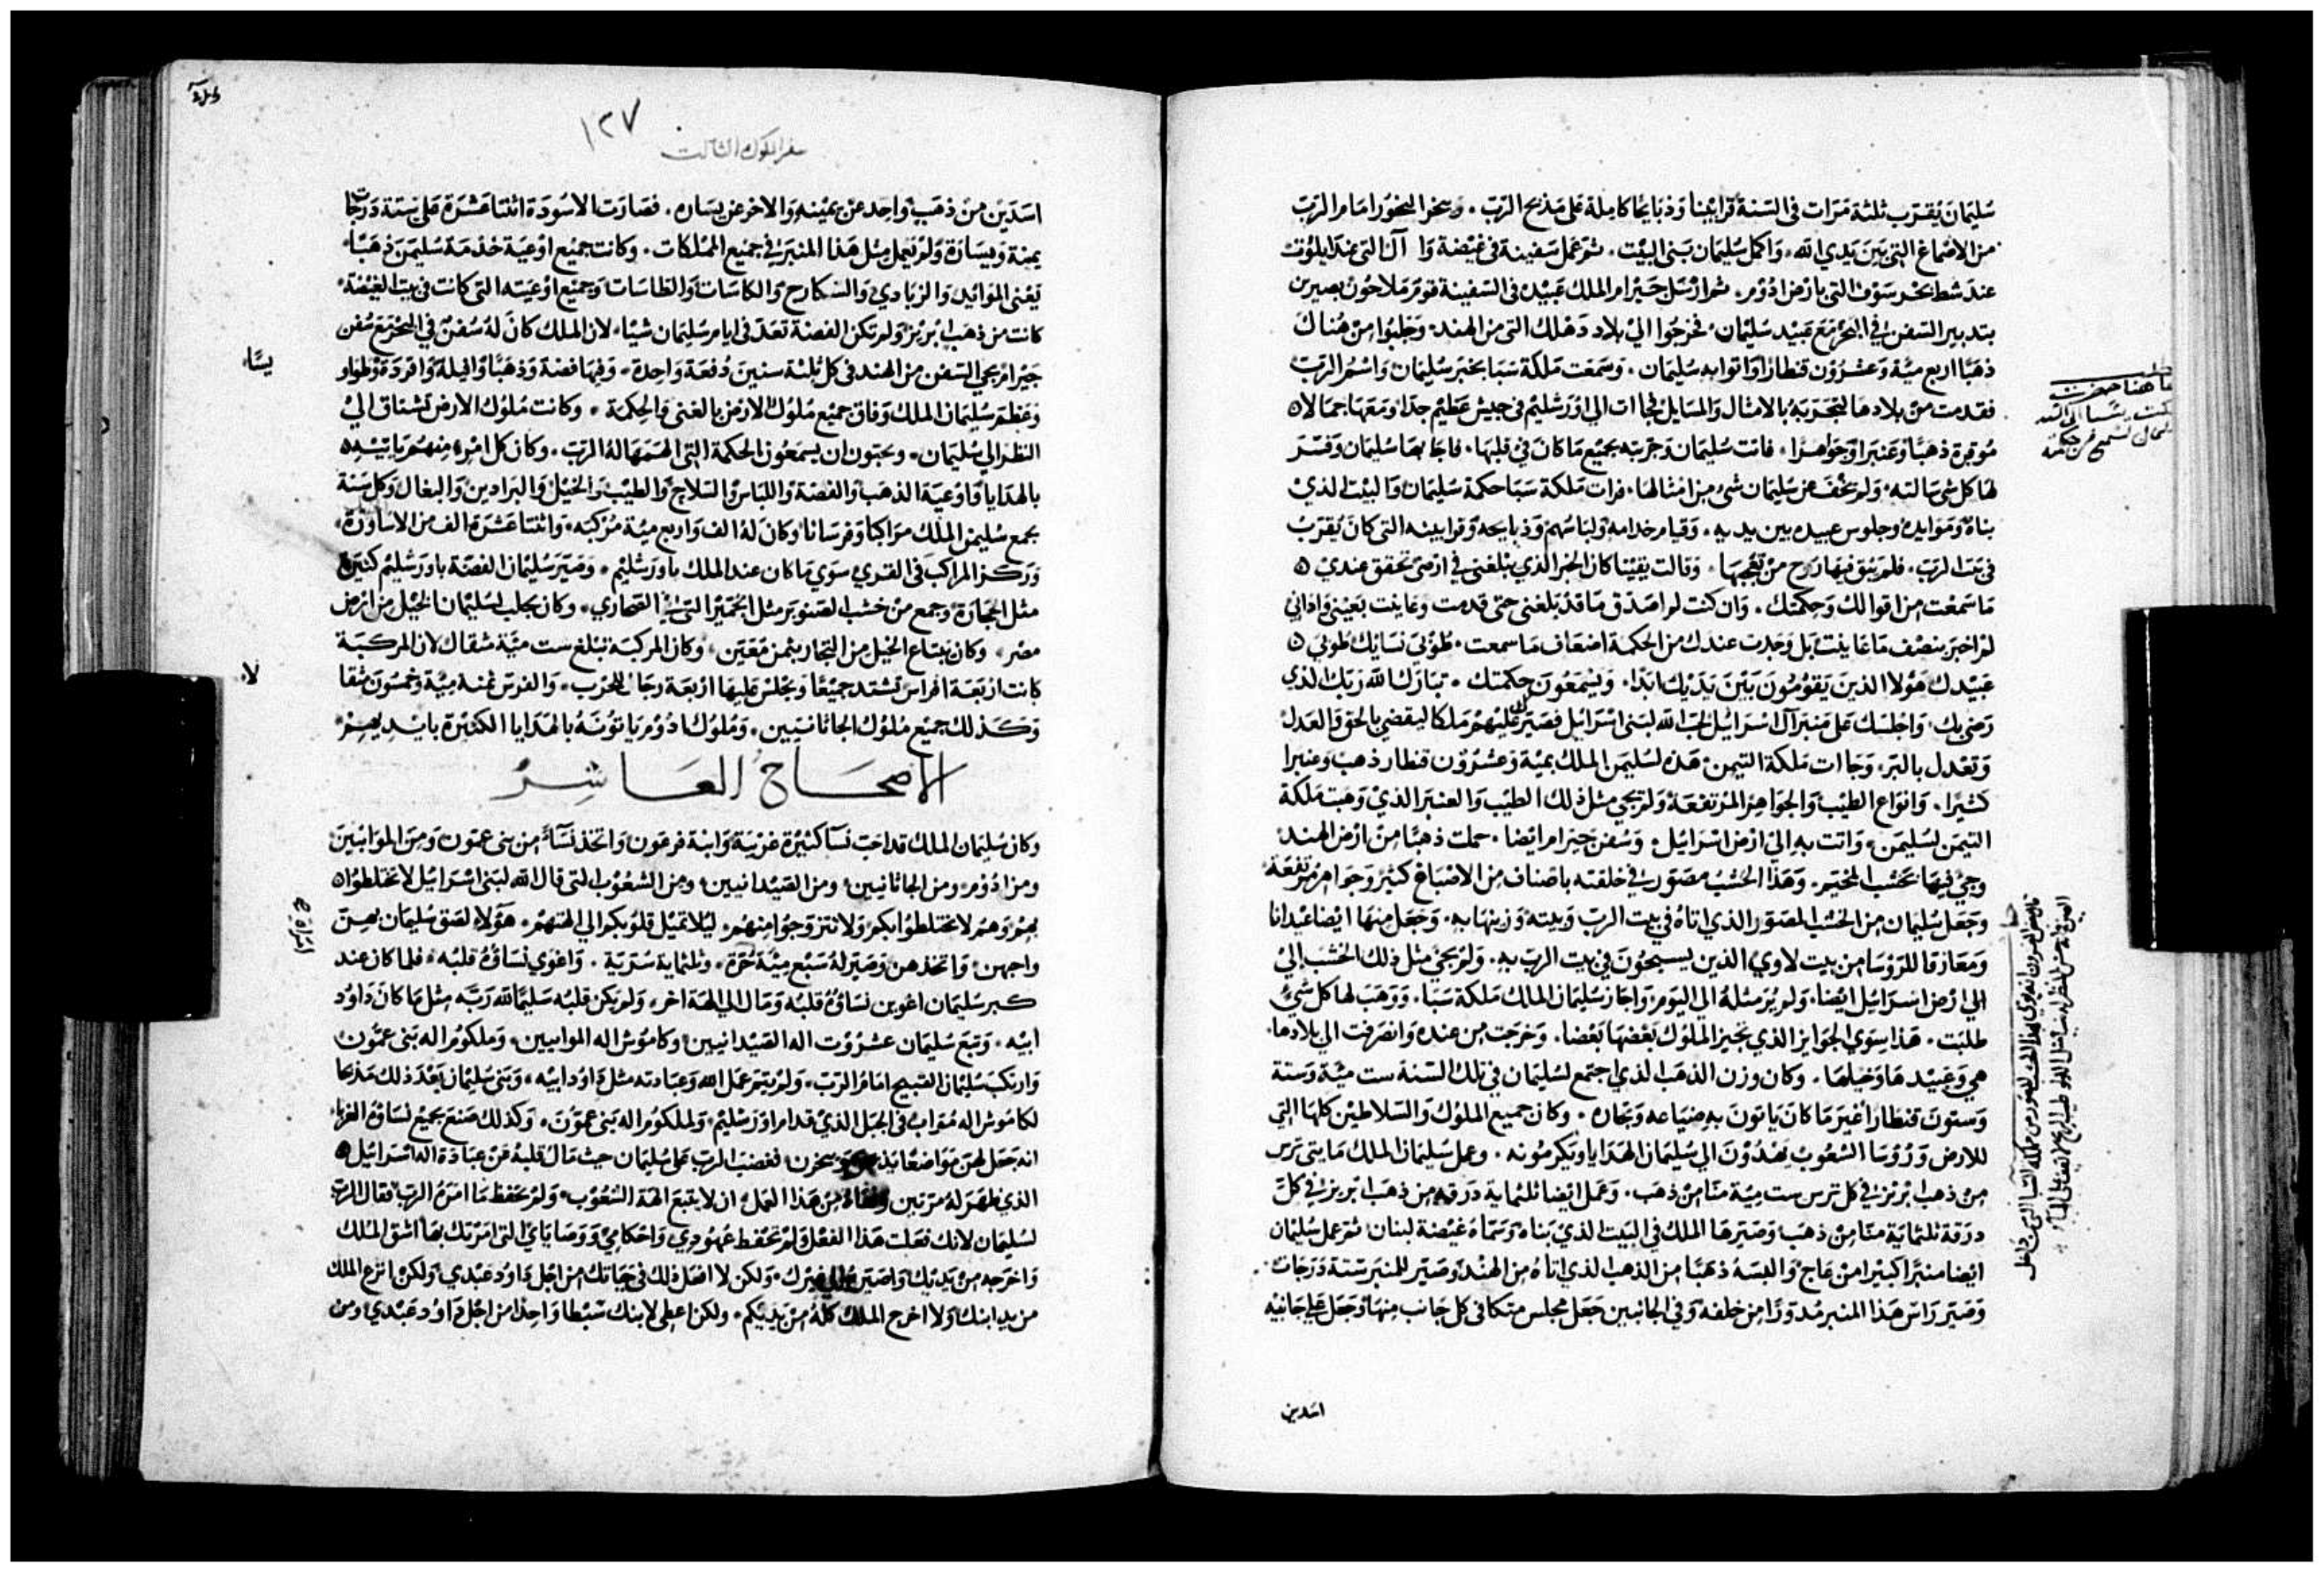 سُليمَان يُقرّب ثلثة مَرّات في السَنة قرابينا وَذبايحًا كاملة عَلى مَذبح الربّ . وبخر البخُور امَام الربّ
من الاصْماغ التي بَين يَدي الله، وَاكمل سُليمَان بَنى البيْت . ثم عَمل سَفينة في غيْضة وَا آل التي عند ايلوُت
عندَ شط بحْر سَوف التي بارْض ادُوْم . ثم ارْسَل حيرَام الملك عَبيْده في السَفينة قومَ ملاحُون بصيرين
بتدبير السَفن في البحْر مَع عَبيْد سُليْمان، فخرجُوا اليْ بلاد دَهلك التي من الهند، وَجَلبُوا منْ هُناك
ذهبًا اربع ميّة وَعشرُوْن قنطارًا وَاتوا به سُليمَان . وَسمَعَت مَلكة سَبَا بخبَر سُليمَان وَاسْمُ الربّ
فقدمت منْ بلادهَا لتجَربَهُ بالامْثال وَالمسَايل فجاات الي اوْرَشليْم في جيش عَظيْم جدًا وَمعَهَا جمَالا
مُوقرة ذهَبًا وَعَنبَرا وَجَوَاهرًا . فاتت سُليمَان وَجرّبته بجميْع مَا كانَ في قلبهَا . فاجابهَا سُليمَان وَفسّر
لهَا كل شي سَالته، وَلم يخْفَ عن سُليمَان شيْ من امْثالهَا . فرات مَلكة سَبَا حكمة سُليمَان وَالبيْت الذيْ
بناهُ وَمَوايده وَجلوس عبيده بين يديه . وَقيام خدامه وَلبَاسَهم وَذبايحه وَقرابينه التي كانَ يُقربُ
في بَيت الربّ . فلم يَبق فيهَا رُوح منْ تعجّبهَا . وَقالت يقينًا كان الخبر الذي بَلغني في ارْضي تحقق عنديْ
مَا سَمعْت من اقوالك وَحكمتك . وَان كنت لم اصَدّق مَا قدْ بَلغني حتّى قدمت وعَاينت بعَيْني وَاذا اني
لم اخبَر بنصْف مَا عَاينت بَل وَجدت عندك من الحكمة اضعَاف مَا سمعت . طُوْبى نسَايك طُوبى
عَبيْدك هَولاا الذين يَقوْمُونَ بَيْنَ يَدَيْك ابَدًا . وَيسْمَعُونَ حكمتك . تبَارَك الله رَبّك الذي
رَضي بك، وَاجلسَك عَلى منبَر آل اسْرَائيل لحبّ الله لبَنى اسْرَائيل فصَيّرك عَليْهمْ مَلكًا ليقضي بالحَق وَالعَدل
وَتعْدل بالبرّ، وَجَاات مَلكة التيمن هَذه لسُليمَن الملك بميّة وَعشرُوْن قنطار ذهبْ وَعنبرا
كثيْرا . وَانوَاع الطيْب وَالجَواهر المُرتفعَة وَلم يجي مثل ذلك الطيْب وَالعنبر الذيْ وَهبَت مَلكة
التيمَن لسُليمَن، وَاتت به الي ارْض اسْرَائيل . وَسُفن حيرَام ايْضا . حملت ذهبًا منْ ارْض الهند
وجيْ فيهَا بخَشب المخيَر . وَهَذا الخشبُ مصَوَّر في خلقته باصناف من الاصْباغ كثيْر وَجَواهر مُرتفعَة
وَجَعل سُليمَان من الخشب المصوَّر الذي اتاهُ في بَيت الربّ وَبيته وَزينهَا به . وَجَعل منهَا ايْضا عيْدانا
وَمَعَازفا للرّؤسَا من بيت لاوي الذين يسبّحُونَ في بيت الربّ به . وَلم يجيْ مثل ذلك الخشب الي
الي ارْض اسْرَائيل ايْضا، وَلم يُرَ مثلهُ الي اليَوم وَاجَاز سُليمَان الملك مَلكة سَبَا . وَوهَبَ لهَا كل شيْ
طلبَت . هَذا سوَي الجَوايز الذي تجيز الملوك بَعْضهَا بَعْضا . وَخرجَت من عنده وَانصَرَفت الي بلادهَا
هي وَعَبيْدهَا وَخيلهَا . وكان وَزن الذهَب الذي اجتمع لسُليمَان في تلك السَنة ست ميّة وَستة
وَستونَ قنطارًا غير مَا كانَ يَاتونَ به ضياعه وَتجاره . وكان جميع الملوُك وَالسَلاطيْن كلهَا التي
للارض وَرُؤسَا الشعُوب يَهدُوْنَ الي سُليمَان الهَدَايا وَيكرمُونه . وَعمل سُليمَان الملك مَايتي تُرس
منْ ذهب ابْريْز في كل ترس ست ميّة منًا منْ ذهَب . وَعَمل ايْضا ثلثماية دَرقه من ذهَب ابْريز في كلّ
درَقة ثلثمَايَة منًا منْ ذهَب وَصَيّرهَا الملك في البَيت الذيْ بَناه وَسَمّاهُ غَيْضة لبنان . ثم عمل سُليمَان
ايْضا منبرًا كبيْرا منْ عَاج وَالبسَهُ ذهَبًا من الذهب الذي اتاهُ من الهنْد، وَصَيّر للمنبَر ستة دَرَجَات
وَصَيّر رَاسَ هَذا المنبر مُدوّرًا من خلفه وَفي الجانبين جَعَل مجلس متكا في كل جَانب منهَا وَجَعَل عَلي جَانبيْه
ها هنا حضرت
اسَدين
١٢٧
سفر الملوك الثالث
اسَدَيْن منْ ذهَب وَاحِد عَن يمْينه وَالاخر عَن يسَاره . فصَارَت الاسُودَة اثنتا عَشرَة عَلى ستة دَرجَات
يمنة وَيسَارة وَلم يُعمل مثل هَذا المنبر في جميْع المملكات . وكانت جميْع اوْعيَة خدْمَة سُليمَن ذهَبًا
يَعْنى المَوائيد وَالزبَاديْ وَالسكارج وَالكاسَات وَالطاسَات وَجميْع اوْعيَته التي كانت في بَيت الغيْضة
كانت من ذهَب ابْريْز وَلم تكن الفضة تعَدّ في ايام سُليمَان شيْا، لان الملك كانَ لهُ سُفنْ في البحْر مَع سُفن
حيْرام يجي السَفن من الهند في كل ثلثة سنينَ دُفعَة وَاحدة . وَفيهَا فضة وَذهبًا وَافيلة وَاقردَة وَطوَاو
وَعَظم سُليمَان الملك وَفاق جميْع مُلوك الارْض بالغنى وَالحكمَة . وكانت مُلوك الارض تشتاق الي
النظر الي سُليمَان . ويحبّون ان يسمَعُون الحكمَة التي الهمَهَا لهُ الربّ . وكانَ كل امْرء منهمْ يَاتيْه
بالهدَايا وَاوْعيَة الذهَب وَالفضة وَاللبَاس وَالسّلاح وَالطيْب وَالخيْل وَالبرَادين وَالبغال وَكل سَنة
يجمع سُليمَن الملك مرَاكبًا وَفرسَانًا وَكان لهُ الف وَاربع ميّة مرْكبه . وَاثنتا عَشرَة الف من الاساورَة
وَرَكز المراكبَ في القري سوَي مَا كان عندَ الملك باوْرَشليْم . وَصَيّر سُليمَان الفضة باورَشليْم كثيْرة
مثل الحجَارَة وَجمع منْ خشب الصَنوبر مثل الجمّيْز التي في الصّحَاري . وَكان يجلب لسُليْمان الخيْل من ارْض
مصْر . وكان يَبتَاع الخيْل من التجار بثمن مُعَيّن . وكان المركبة تبْلغ ست ميّة مثقال لان المركبَة
كانت ارْبَعَة افراس تشتد جميْعًا وَيجلس عَليهَا ارْبَعة رجَال للحَرب . وَالفرس ثمنه ميّة وَخمسُونَ مثقا
وَكذلك جميْع مُلوك الجاثانيين، وَمُلوك ادُوْم يَاتوُنَهُ بالهَدَايا الكثيْرة بايديهمْ
الاصحَاحُ العَاشِرُ
وكان سُليمَان الملك قد احَبّ نسَآ كثيْرة غريْبَة وَابنة فرعَون، وَاتخذ نسَآءً من بني عَمّون وَمن الموَابيينَ
ومن ادُوْم ومن الجاثانيين، ومن الصَيْدانيين، ومن الشعُوْب التي قال الله لبَنى اسْرَائيل لا تختلطوا
بهمْ وَهمْ لا يختلطوُا بكم وَلا تتزوجوا منهمْ، ليلا تميْل قلوْبكم الي الهتهمْ . هَوُلاء لصق سُليمَان بهنّ
وَاحبهن، وَاتخذهن وَصَيّر لهُ سَبْع ميّة حُرّة، وَثلثماية سُريّة . وَاغوَي نسَاؤُه قلبُه . فلما كان عند
كبر سُليمَان اغوين نسَاؤُه قلبُه وَمَال الي الهَة اخر، وَلم يكن قلبُه سَليْمًا لله رَبّه مثل مَا كانَ دَاوُد
ابيْه . وَتبعَ سُليمَان عشرُوْت اله الصَيْدانيين، وكاموُش اله الموابيين، وَملكوُم اله بَنى عمّوُن
وَارتكبَ سُليمَان القبيْح امَام الربّ، وَلم يتم عَمل الله وَعبَادته مثل دَاوُد ابيْه . وَبَنى سُليمَان بَعْد ذلك مَذبحا
لكامُوش اله مُوَاب في الجبَل الذيْ قدام اوْرَشليْم، وَلملكوُم اله بَنى عمّوُن . وَكذلك صَنعَ بجميْع نسَاؤُه الغربَا
انه جَعَل لهنّ موَاضعًا يبخرن، فغضبَ الربّ عَلى سُليمَان حيث مَالَ قلبُه عَنْ عبَادَة اله اسْرَائيل
الذي ظهَر لهُ مرَتين منْ هَذا العَمل ان لا يتبعَ الهة الشعُوْب، وَلم يحْفظ مَا امَرَهُ الربّ فقال الربّ
لسُليمَان لانك فعَلت هَذا الفعْل وَلم تحْفظ عُهُودي وَاحكامي وَوَصَايَايَ التي امَرْتك بهَا اشق المُلك
وَاخرجه منْ يَديْك وَاصَيّره الي غيرك، وَلكن لا افعَل ذلك في حَيَاتك من اجْل دَاوُد عَبْدي وَلكن انزع الملك
من يد ابنك وَلا اخرج الملك كلهُ منْ يَديكم . ولكن اعطي لابنك سَبْطا وَاحدًا من اجْل دَاوُد عَبْدي وَمن